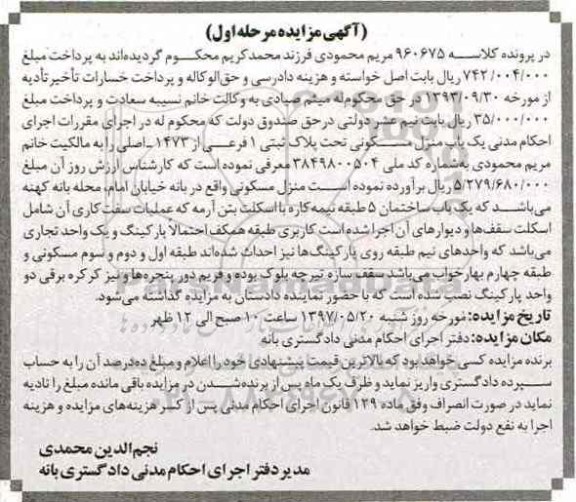 (آگهی مزایده مرحله اول)
در پرونده کلاسه ۹۶۰۶۷۵ مریم محمودی فرزند محمدکریم محکوم گردیده‌اند به پرداخت مبلغ
۷۴۲/۰۰۴/۰۰۰ ریال بابت اصل خواسته و هزینه دادرسی و حق‌الوکاله و پرداخت خسارات تأخیر تأدیه
از مورخه ۱۳۹۳/۰۹/۳۰ در حق محکوم‌له میثم صیادی به وکالت خانم نسیبه سعادت و پرداخت مبلغ
۳۵/۰۰۰/۰۰۰ ریال بابت نیم عشر دولتی در حق صندوق دولت که محکوم له در اجرای مقررات اجرای
احکام مدنی یک باب منزل مسکونی تحت پلاک ثبتی ۱ فرعی از ۱۴۷۳ـ اصلی را به مالکیت خانم
مریم محمودی به‌شماره کد ملی ۳۸۴۹۸۰۰۵۰۴ معرفی نموده است که کارشناس ارزش روز آن مبلغ
۵/۲۷۹/۶۸۰/۰۰۰ ریال برآورده نموده است منزل مسکونی واقع در بانه خیابان امام، محله بانه کهنه
می‌باشد که یک باب ساختمان ۵ طبقه نیمه‌کاره با اسکلت بتن آرمه که عملیات سفت‌کاری آن شامل
اسکلت سقف‌ها و دیوارهای آن اجرا شده است کاربری طبقه همکف احتمالا پارکینگ و یک واحد تجاری
می‌باشد که واحدهای نیم طبقه روی پارکینگ‌ها نیز احداث شده‌اند طبقه اول و دوم و سوم مسکونی و
طبقه چهارم بهارخواب می‌باشد سقف سازه تیرچه بلوک بوده و فریم دور پنجره‌ها و نیز کرکره برقی دو
واحد پارکینگ نصب شده است که با حضور نماینده دادستان به مزایده گذاشته می‌شود.
تاریخ مزایده: مورخه روز شنبه ۱۳۹۷/۰۵/۲۰ ساعت ۱۰ صبح الی ۱۲ ظهر
مکان مزایده: دفتر اجرای احکام مدنی دادگستری بانه
برنده مزایده کسی خواهد بود که بالاترین قیمت پیشنهادی خود را اعلام و مبلغ ده‌درصد آن را به حساب
سپرده دادگستری واریز نماید و ظرف یک ماه پس از برنده‌شدن در مزایده باقی مانده مبلغ را تادیه
نماید در صورت انصراف وفق ماده ۱۲۹ قانون اجرای احکام مدنی پس از کسر هزینه‌های مزایده و هزینه
اجرا به نفع دولت ضبط خواهد شد.
نجم‌الدین محمدی
مدیر دفتر اجرای احکام مدنی دادگستری بانه
ParsNamadData